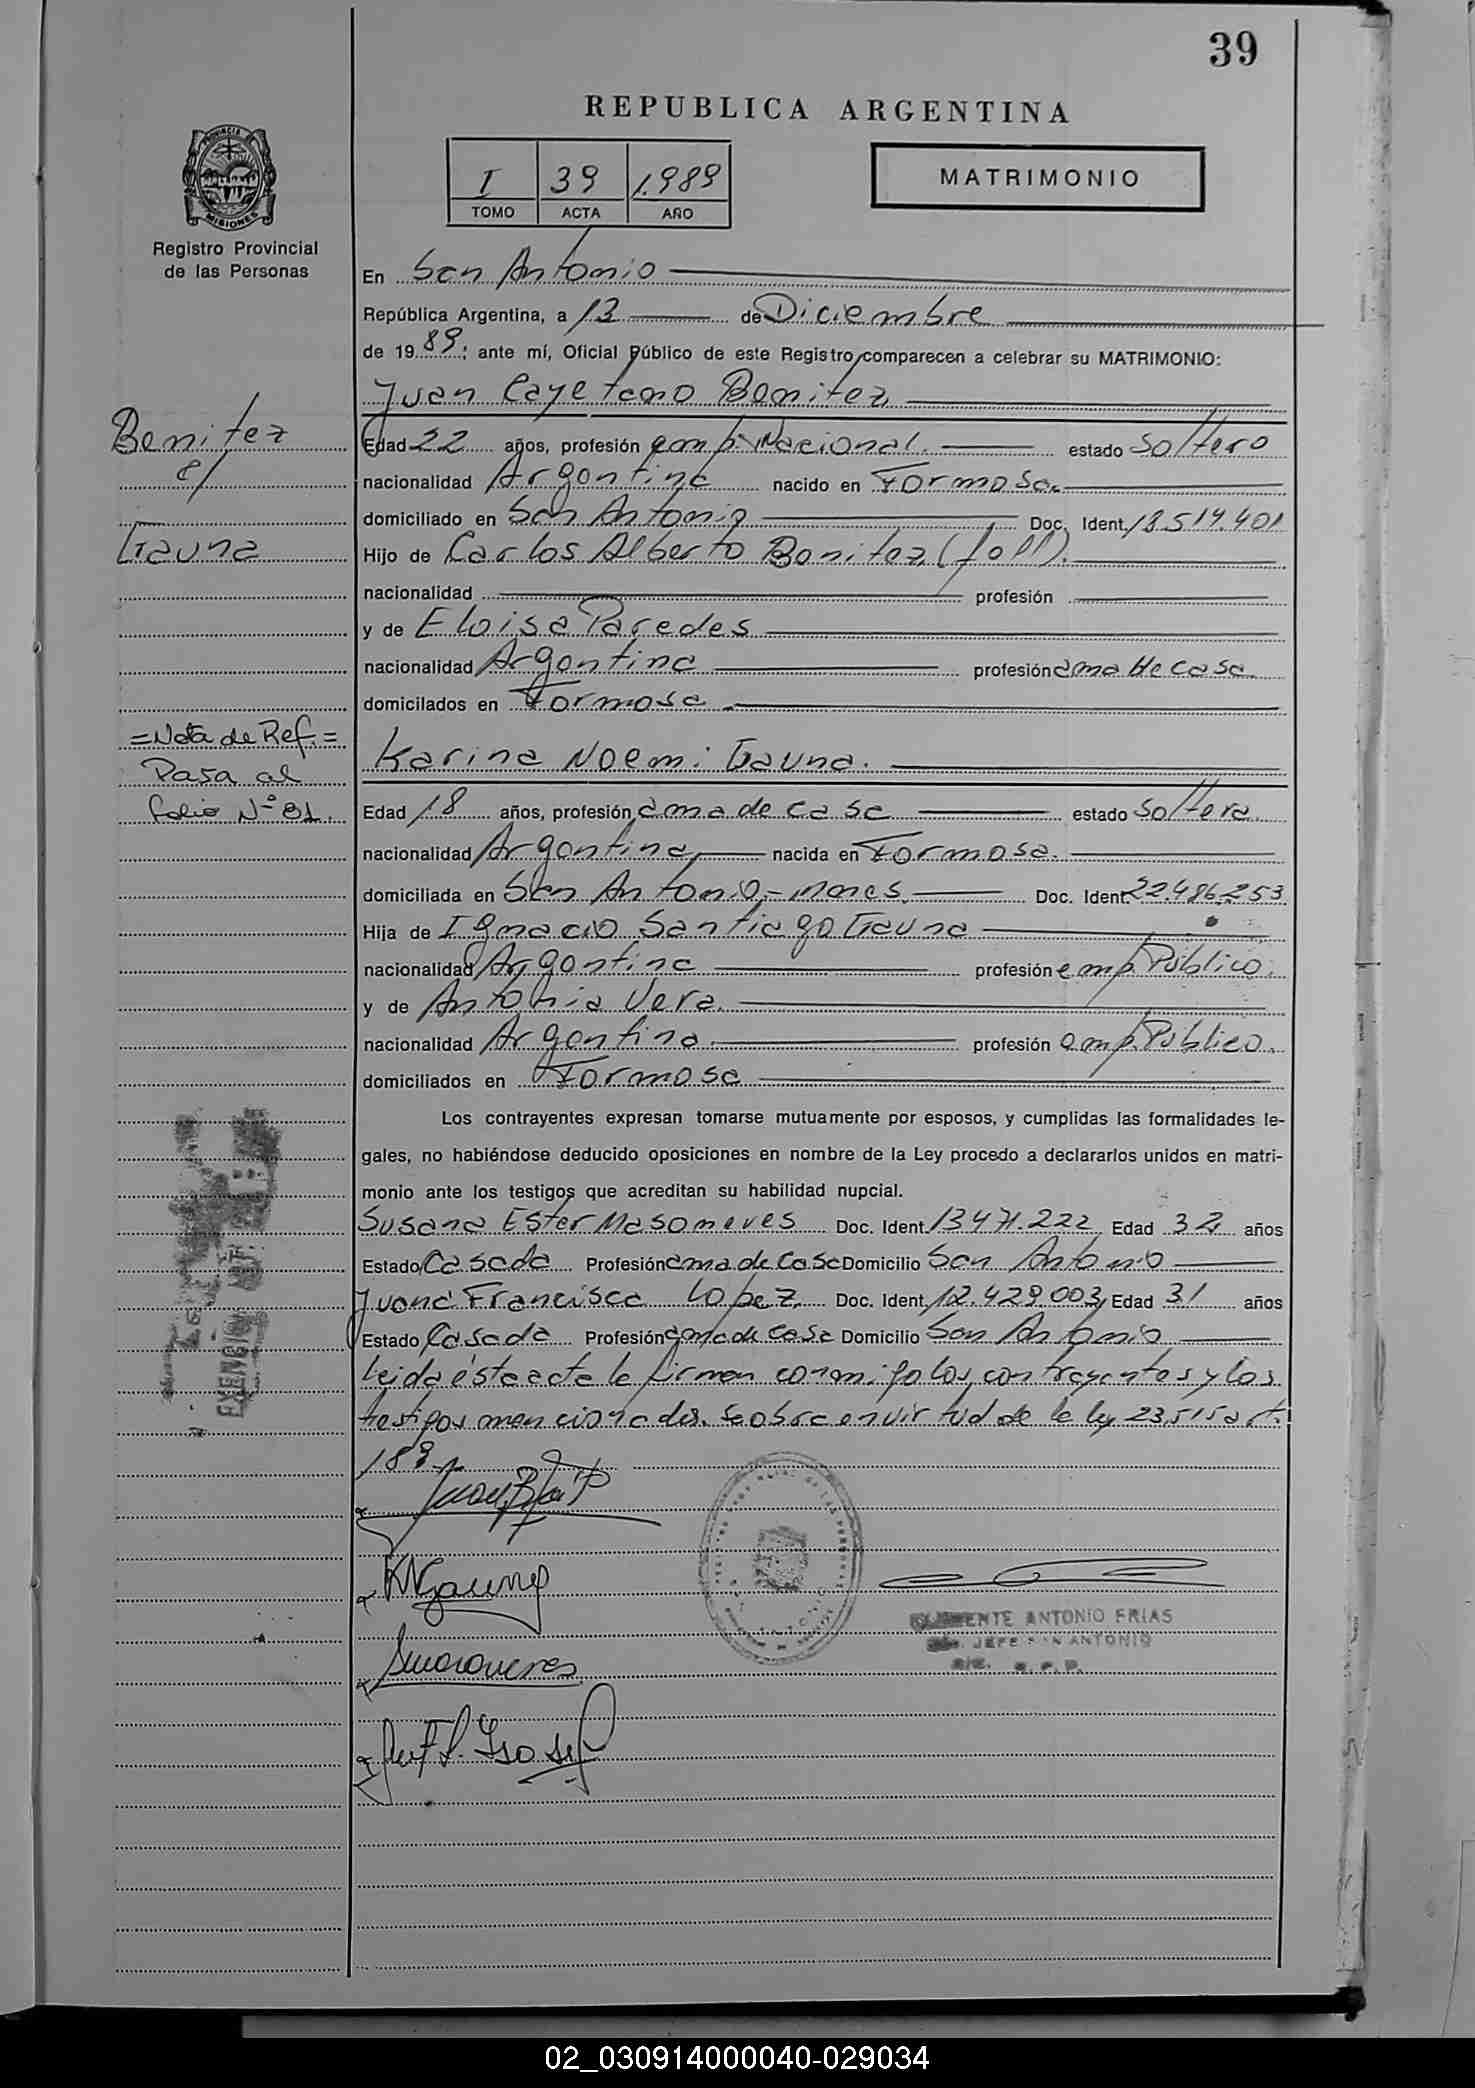 39
REPUBLICA ARGENTINA
I 39 1.989
TOMO ACTA AÑO
MATRIMONIO
PROVINCIA DE
MISIONES
Registro Provincial
de las Personas
En San Antonio
República Argentina, a 13 de Diciembre
de 19 89; ante mí, Oficial Público de este Registro comparecen a celebrar su MATRIMONIO:
Juan Cayetano Benitez
Benitez
c/
Gauna
Edad 22 años, profesión emp. Nacional. estado Soltero
nacionalidad Argentina nacido en Formosa.
domiciliado en San Antonio Doc. Ident. 18.519.401
Hijo de Carlos Alberto Benitez (fall).
nacionalidad profesión
y de Eloisa Paredes
nacionalidad Argentina profesión ama de casa
domicilados en Formosa
=Nota de Ref.=
Pasa al
folio Nº 81.
Karina Noemi Gauna.
Edad 18 años, profesión ama de casa estado Soltera.
nacionalidad Argentina nacida en Formosa.
domiciliada en San Antonio-mnes. Doc. Ident. 22.486.253
Hija de Ignacio Santiago Gauna
nacionalidad Argentina profesión emp. Público.
y de Antonia Vera.
nacionalidad Argentina profesión emp. Público.
domiciliados en Formosa
Los contrayentes expresan tomarse mutuamente por esposos, y cumplidas las formalidades le-
gales, no habiéndose deducido oposiciones en nombre de la Ley procedo a declararlos unidos en matri-
monio ante los testigos que acreditan su habilidad nupcial.
Susana Ester Masoneves Doc. Ident. 13471.222 Edad 32 años
Estado Casada Profesión ama de casa Domicilio San Antonio
Juana Francisca Lopez Doc. Ident. 12.429.003 Edad 31 años
Estado Casada Profesión ama de casa Domicilio San Antonio
Leida ésta acta la firman conmigo los contrayentes y los
testigos mencionados. Se obra en virtud de la ley 23.515 art.
188
KNGauna
ANTONIO FRIAS
JEFE SAN ANTONIO
02_030914000040-029034